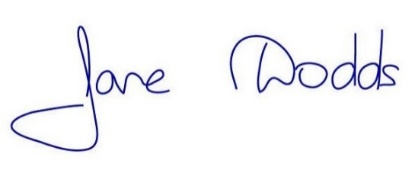 Jane Dodds